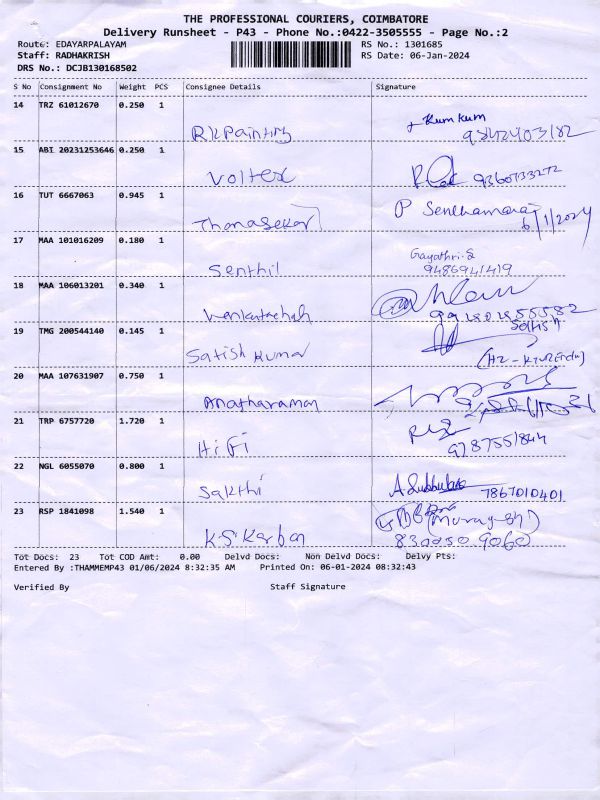 THE PROFESSIONAL COURIERS, COIMBATORE
Delivery Runsheet - P43 - Phone No.:0422-3505555 - Page No.:2
Route: EDAYARPALAYAM RS No.: 1301685
Staff: RADHAKRISH RS Date: 06-Jan-2024
DRS No.: DCJB130168502
S No Consignment No Weight PCS Consignee Details Signature
14 TRZ 61012670 0.250 1
Kumkum
RK Painting 9842403182
15 ABI 20231253646 0.250 1
Voltex 9360733272
16 TUT 6667063 0.945 1 P Senthamarai
Thanasekar 6/1/2024
17 MAA 101016209 0.180 1
Gayathri.S
Senthil 9486941419
18 MAA 106013201 0.340 1
Venkatachah
19 TMG 200544140 0.145 1 Satish
Satish Kumar
20 MAA 107631907 0.750 1
Anatharaman
21 TRP 6757720 1.720 1
HiFi 9787551844
22 NGL 6055070 0.800 1
Sakthi 7867010401
23 RSP 1841098 1.540 1
K.S. Karban
Tot Docs: 23 Tot COD Amt: 0.00 Delvd Docs: Non Delvd Docs: Delvy Pts:
Entered By :THAMMEMP43 01/06/2024 8:32:35 AM Printed On: 06-01-2024 08:32:43
Verified By Staff Signature